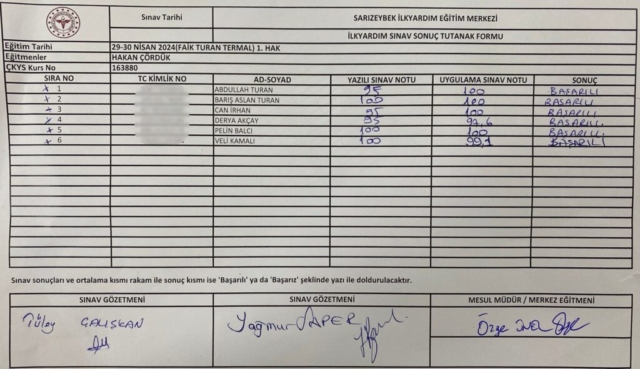 Sınav Tarihi
SARIZEYBEK İLKYARDIM EĞİTİM MERKEZİ
İLKYARDIM SINAV SONUÇ TUTANAK FORMU
Eğitim Tarihi 29-30 NİSAN 2024(FAİK TURAN TERMAL) 1. HAK
Eğitmenler HAKAN ÇÖRDÜK
ÇKYS Kurs No 163880
SIRA NO TC KİMLİK NO AD-SOYAD YAZILI SINAV NOTU UYGULAMA SINAV NOTU SONUÇ
x 1 ABDULLAH TURAN 95 100 BAŞARILI
x 2 BARIŞ ASLAN TURAN 100 100 BAŞARILI
x 3 CAN İRHAN 95 100 BAŞARILI
x 4 DERYA AKÇAY 95 97,6 BAŞARILI
x 5 PELİN BALCI 100 100 BAŞARILI
x 6 VELİ KAMALI 100 99,1 BAŞARILI
Sınav sonuçları ve ortalama kısmı rakam ile sonuç kısmı ise 'Başarılı' ya da 'Başarız' şeklinde yazı ile doldurulacaktır.
SINAV GÖZETMENİ SINAV GÖZETMENİ MESUL MÜDÜR / MERKEZ EĞİTMENİ
Tülay ÇALIŞKAN Yağmur APER Özge